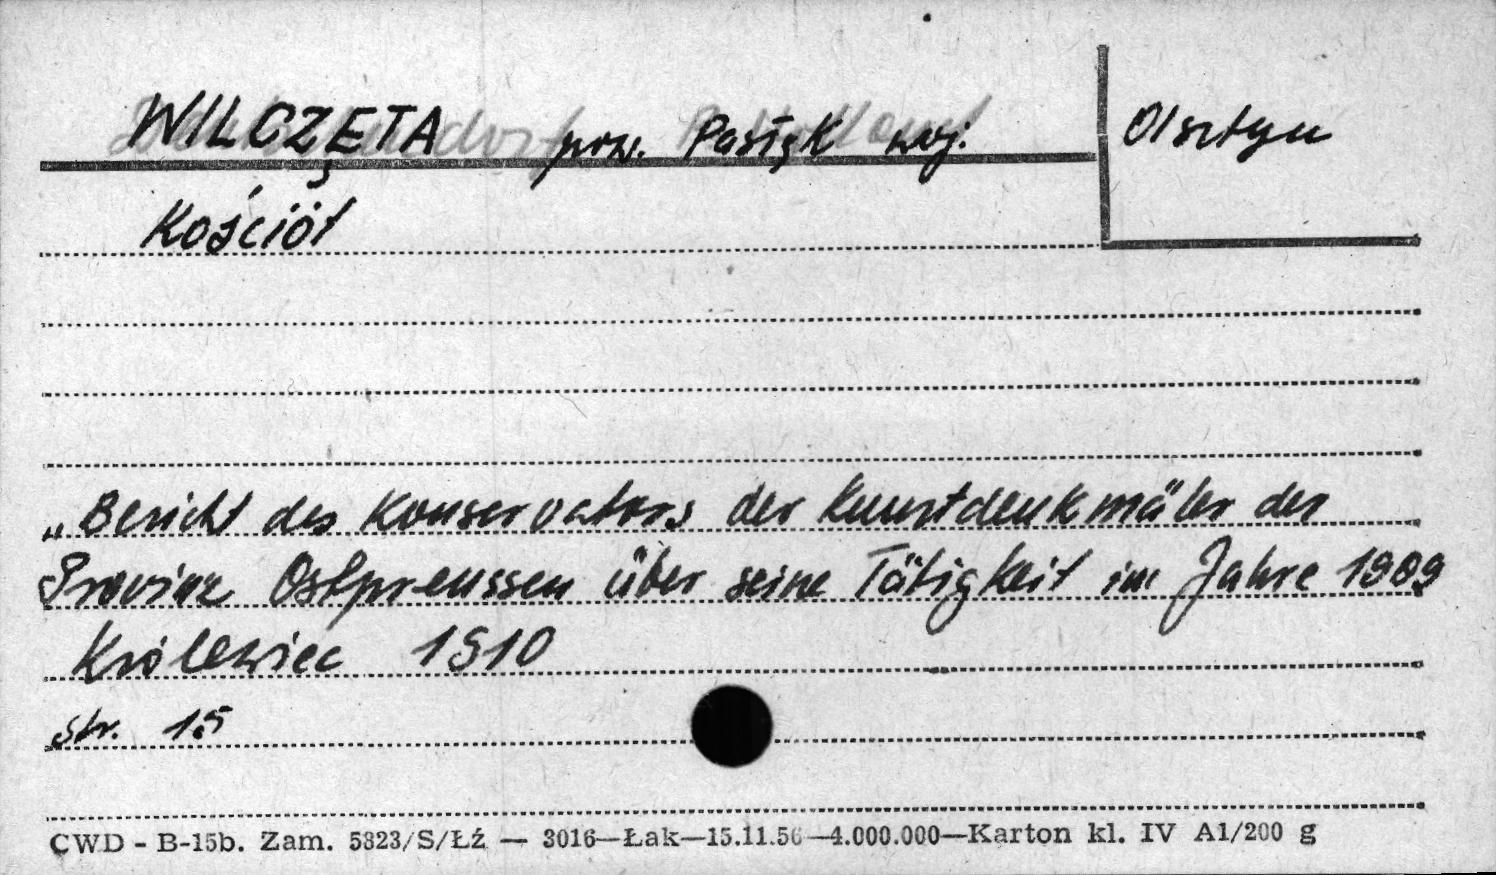 WILCZĘTA pow. Pasłęk woj. Olsztyn
Kościół
„Bericht des Konservators der Kunstdenkmäler der
Provinz Ostpreussen über seine Tätigkeit im Jahre 1909
Królewiec 1910
str. 15
CWD - B-15b. Zam. 5823/S/Łź — 3016—Łak—15.11.56—4.000.000—Karton kl. IV A1/200 g